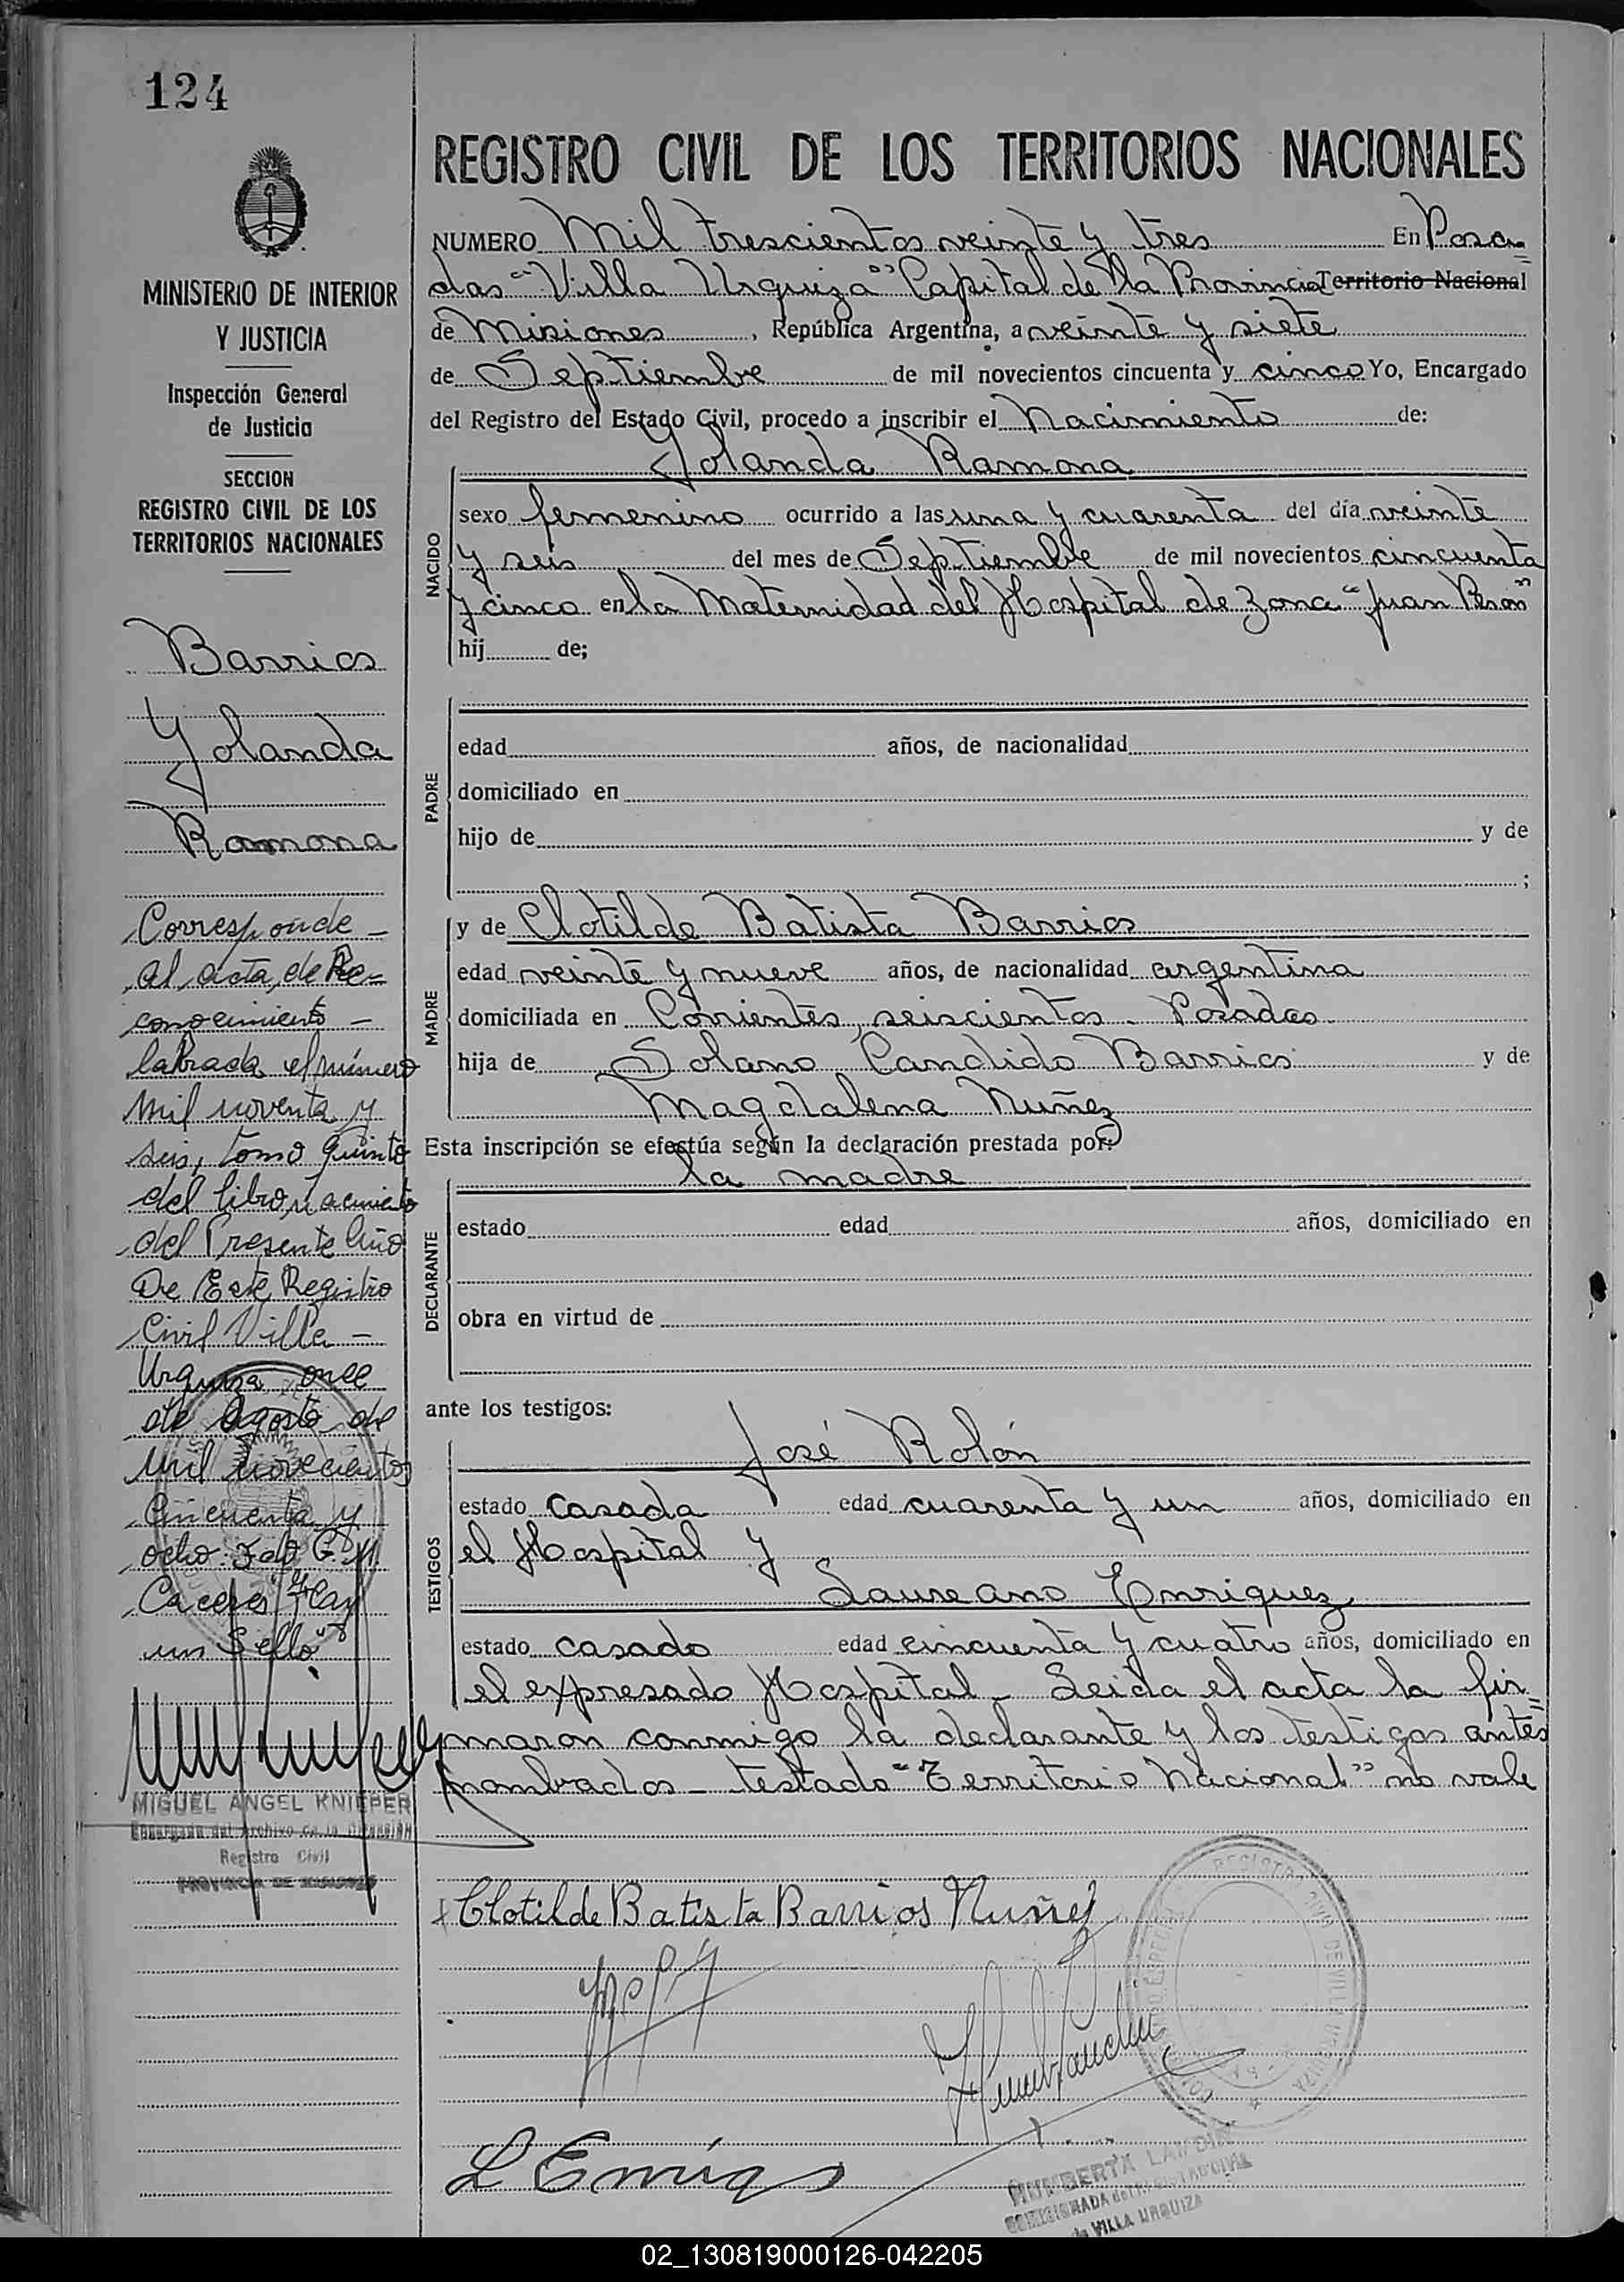 124
MINISTERIO DE INTERIOR
Y JUSTICIA
Inspección General
de Justicia
SECCION
REGISTRO CIVIL DE LOS
TERRITORIOS NACIONALES
Barrios
Yolanda
Ramona
Corresponde
al acta, de Re-
conocimiento
labrada el número
mil noventa y
seis, tomo quinto
del libro, nacimiento
del Presente Año
De Este Registro
Civil Villa
Urquiza, once
de Agosto de
Mil novecientos
Cincuenta y
ocho: Fdo G. M.
Caceres "Hay
un Sello"
MIGUEL ANGEL KNIEPER
Encargado del Archivo de la
Registro Civil
PROVINCIA DE MISIONES
REGISTRO CIVIL DE LOS TERRITORIOS NACIONALES
NUMERO Mil trescientos veinte y tres En Posa=
das "Villa Urquiza" Capital de la Provincia Territorio Nacional
de Misiones, República Argentina, a veinte y siete
de Septiembre de mil novecientos cincuenta y cinco Yo, Encargado
del Registro del Estado Civil, procedo a inscribir el Nacimiento de:
Yolanda Ramona
NACIDO
sexo femenino ocurrido a las una y cuarenta del día veinte
y seis del mes de Septiembre de mil novecientos cincuenta
y cinco en la Maternidad del Hospital de Zona "Juan Perón"
hij de;
PADRE
edad años, de nacionalidad
domiciliado en
hijo de y de
;
MADRE
y de Clotilde Batista Barrios
edad veinte y nueve años, de nacionalidad argentina
domiciliada en Corrientes, seiscientos - Posadas
hija de Solano Candido Barrios y de
Magdalena Nuñez
Esta inscripción se efectúa según la declaración prestada por:
la madre
DECLARANTE
estado edad años, domiciliado en
obra en virtud de
ante los testigos:
José Rolón
TESTIGOS
estado casada edad cuarenta y un años, domiciliado en
el Hospital y
Laureano Enriquez
estado casado edad cincuenta y cuatro años, domiciliado en
el expresado Hospital - Leida el acta la fir=
maron conmigo la declarante y los testigos antes
nombrados - testado "Territorio Nacional" no vale
x Clotilde Batista Barrios Nuñez
REGISTRO CIVIL DE VILLA URQUIZA
HUMBERTA LANDIN
COMISIONADA del REGISTRO CIVIL
de VILLA URQUIZA
02_130819000126-042205